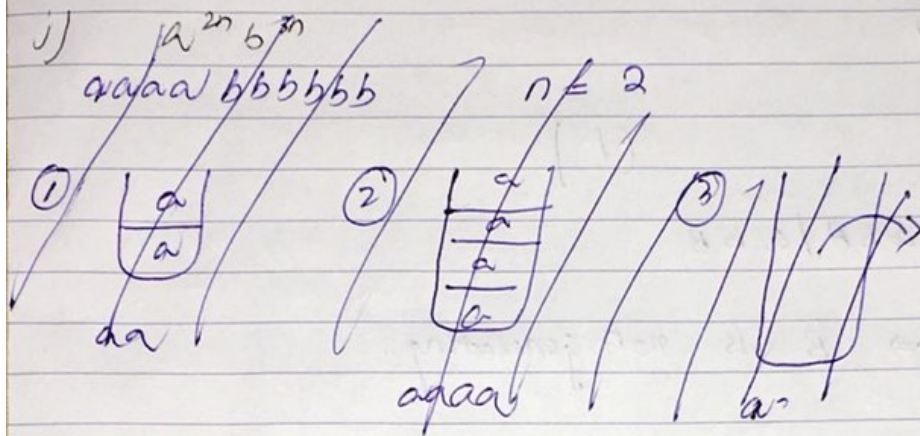 i) a²ⁿ b³ⁿ
aaaa bbbbbb n = 2
① ② ③
a a
a a
a
a
aa aaaa a